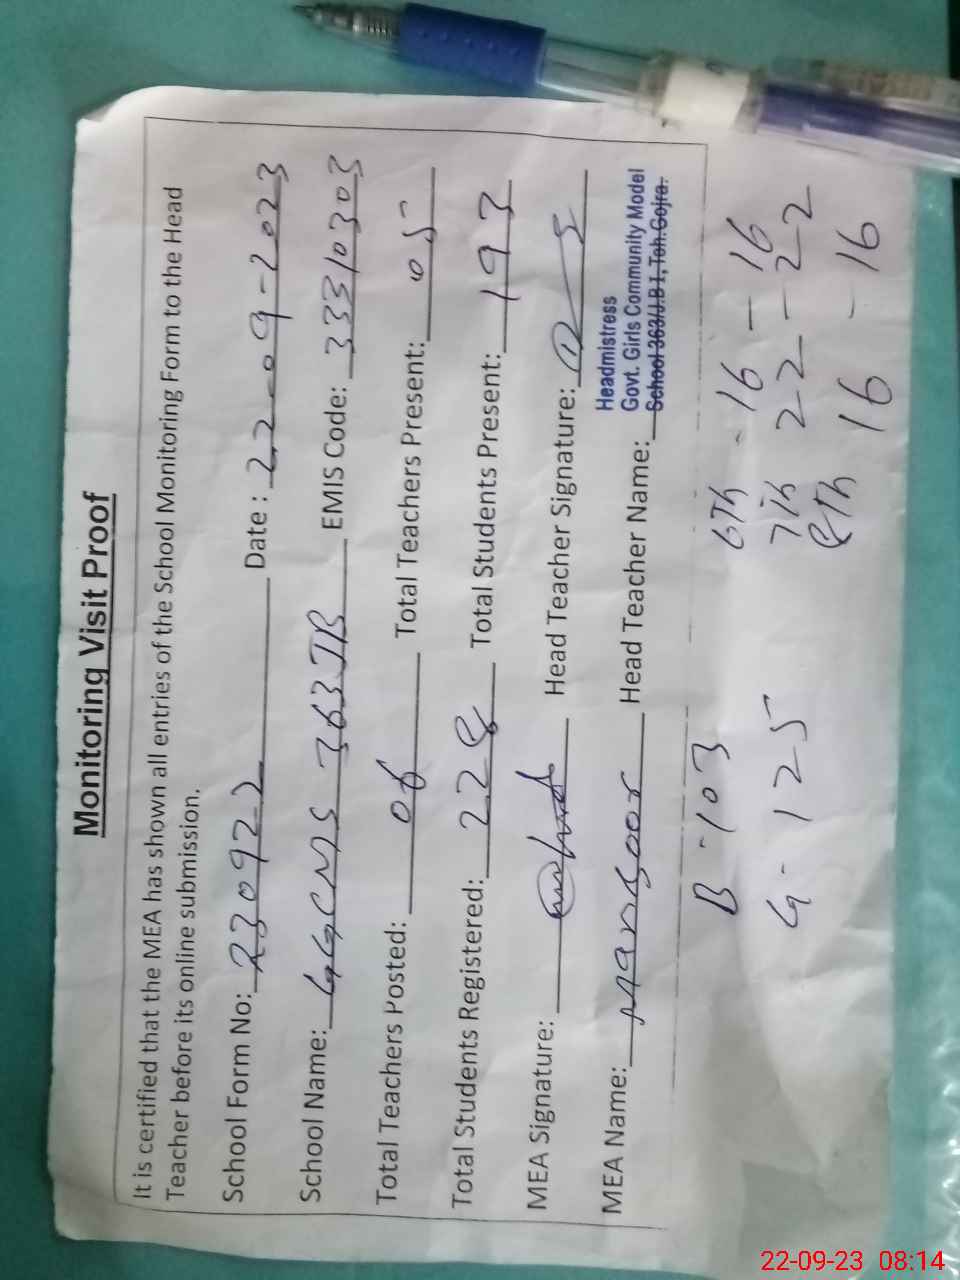 Monitoring Visit Proof
It is certified that the MEA has shown all entries of the School Monitoring Form to the Head
Teacher before its online submission.
School Form No: 230922 Date : 22-09-2023
School Name: GGCMS 363JB EMIS Code: 33310303
Total Teachers Posted: 06 Total Teachers Present: 05
Total Students Registered: 228 Total Students Present: 193
MEA Signature: Head Teacher Signature:
MEA Name: Mansoor Head Teacher Name:
Headmistress
Govt. Girls Community Model
School 363/J.B I, Teh. Gojra.
B - 103
G - 125
6Th - 16 - 16
7Th 22 - 22
8Th 16 - 16
22-09-23 08:14